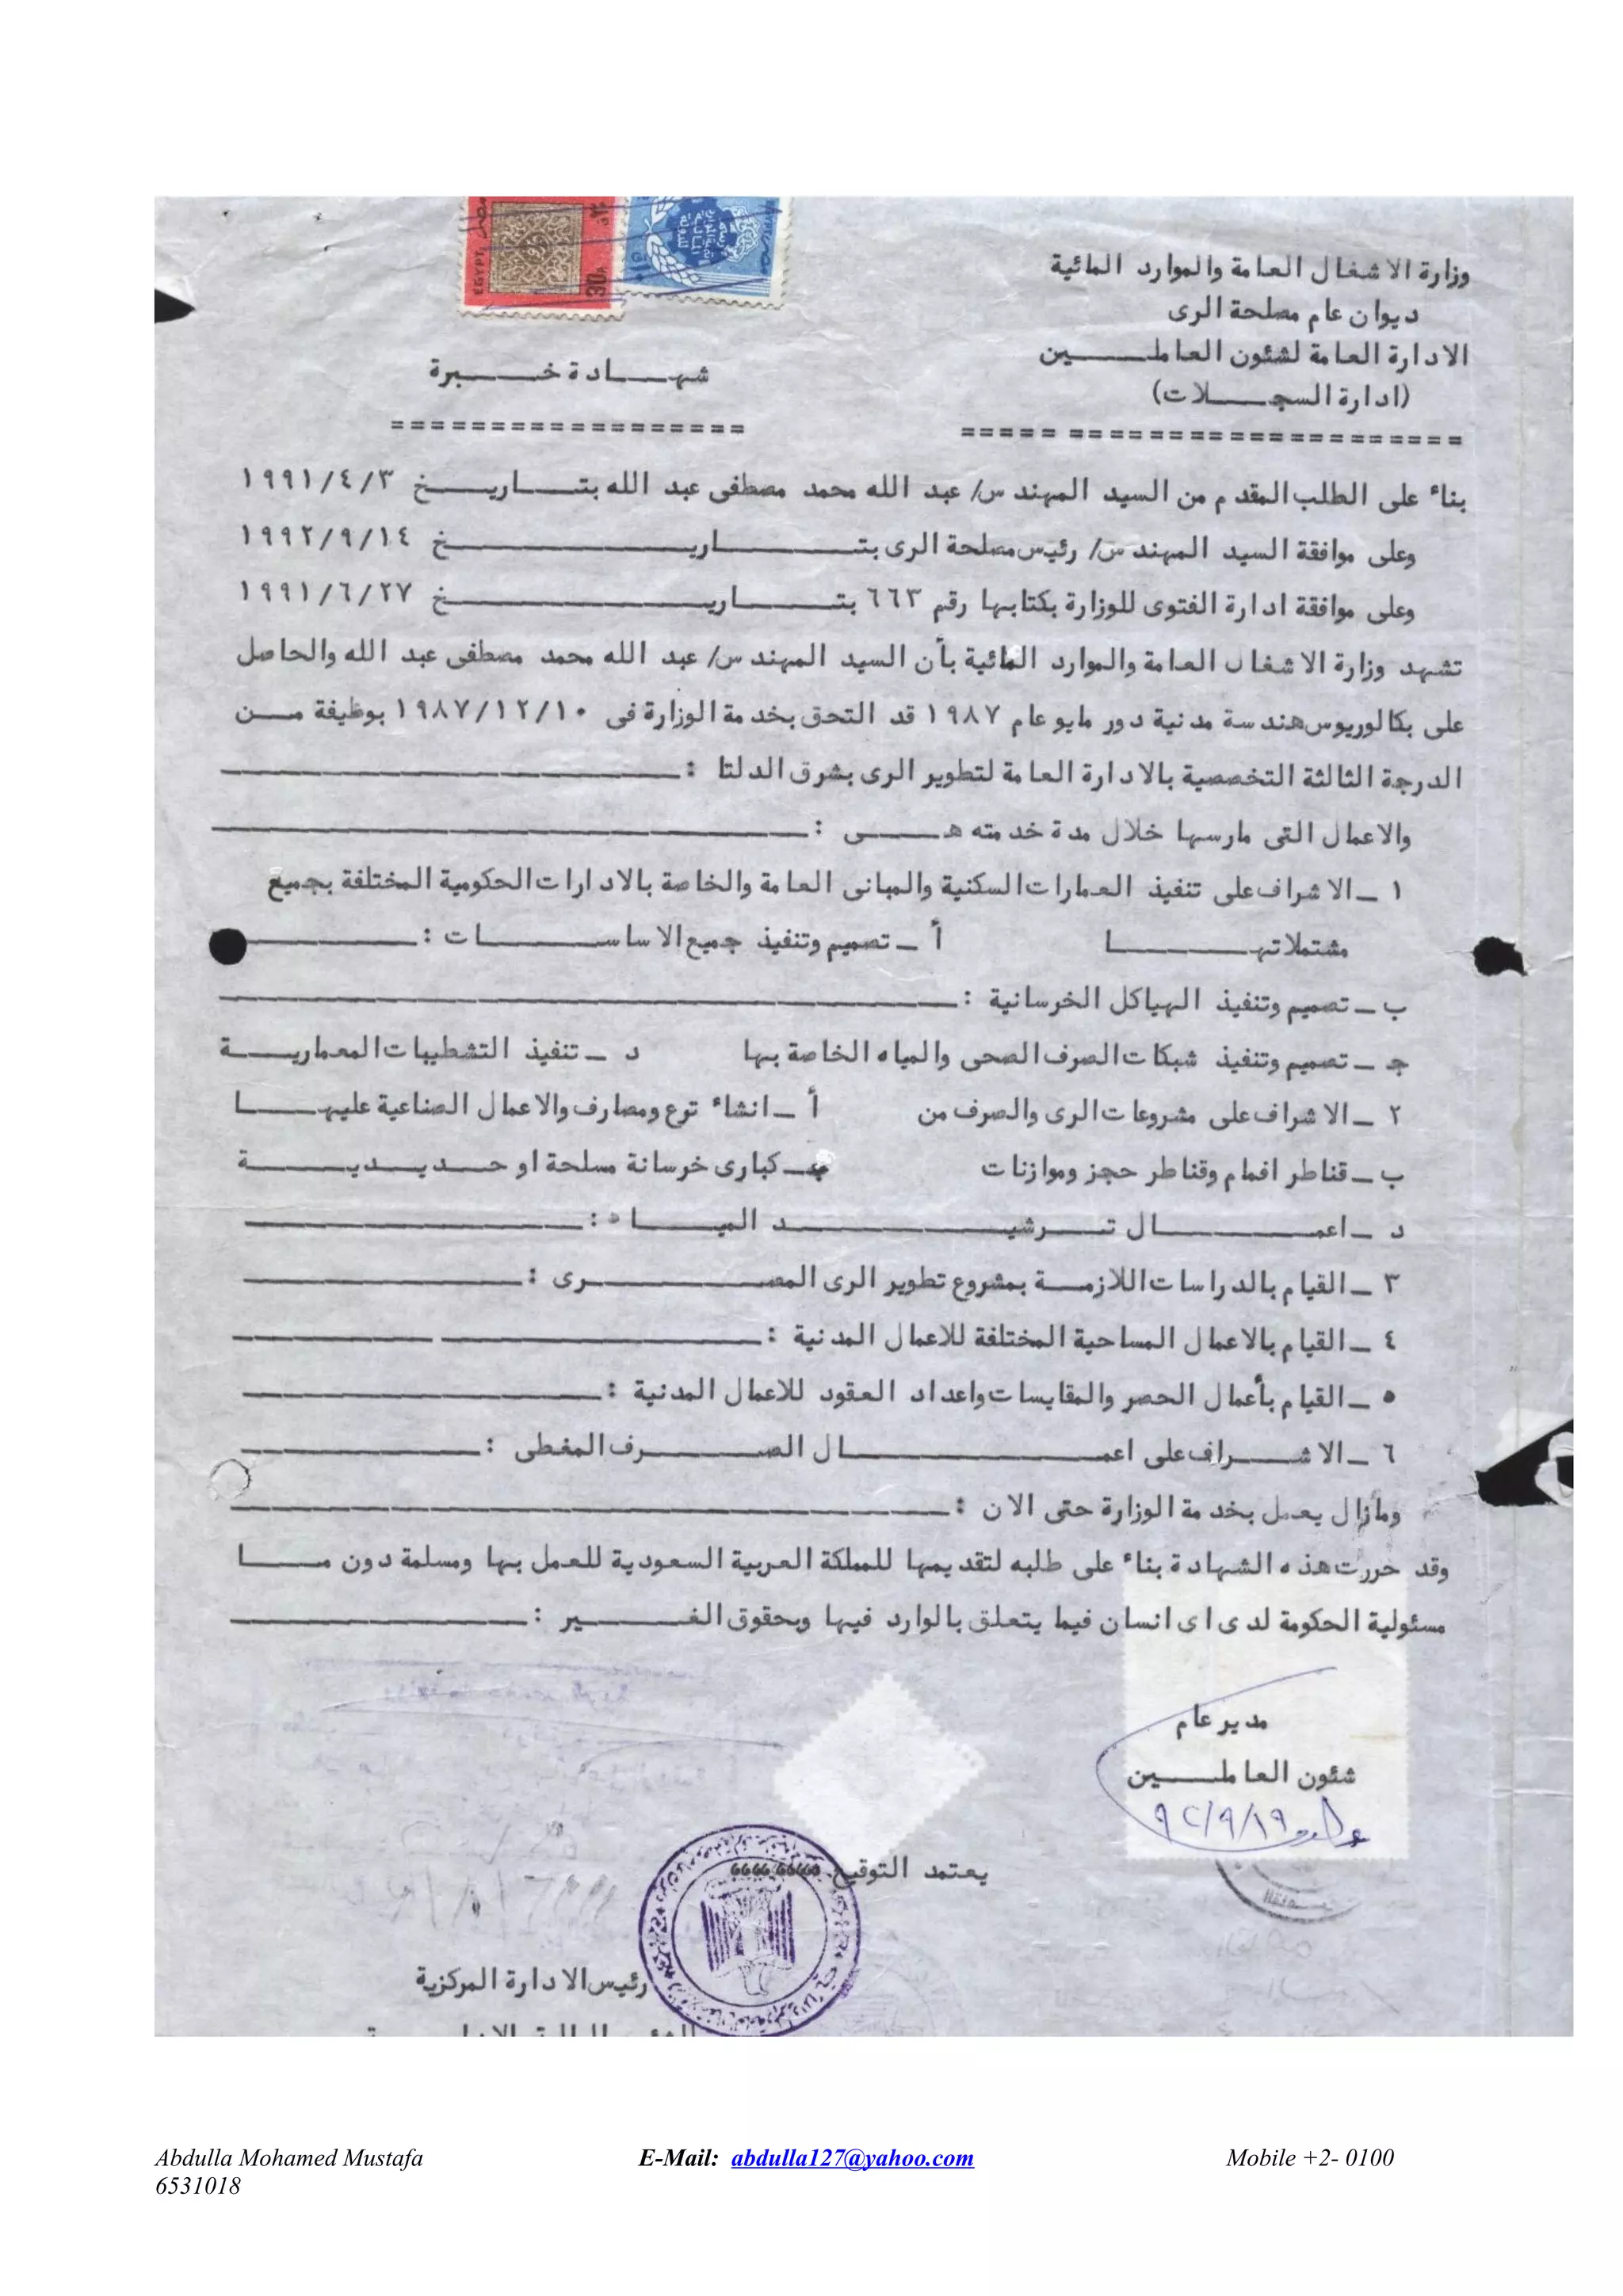 EGYPT
مصر
30
وزارة الاشغال العامة والموارد المائية
ديوان عام مصلحة الرى
الادارة العامة لشئون العاملين
(ادارة السجلات)
شهادة خبرة
بناء على الطلب المقدم من السيد المهندس/ عبد الله محمد مصطفى عبد الله بتاريخ ١٩٩١/٤/٣
وعلى موافقة السيد المهندس/ رئيس مصلحة الرى بتاريخ ١٩٩٢/٩/١٤
وعلى موافقة ادارة الفتوى للوزارة بكتابها رقم ٦٦٣ بتاريخ ١٩٩١/٦/٢٧
تشهد وزارة الاشغال العامة والموارد المائية بأن السيد المهندس/ عبد الله محمد مصطفى عبد الله والحاصل
على بكالوريوس هندسة مدنية دور مايو عام ١٩٨٧ قد التحق بخدمة الوزارة فى ١٩٨٧/١٢/١٠ بوظيفة من
الدرجة الثالثة التخصصية بالادارة العامة لتطوير الرى بشرق الدلتا :
والاعمال التى مارسها خلال مدة خدمته هى :
١ ـ الاشراف على تنفيذ العمارات السكنية والمبانى العامة والخاصة بالادارات الحكومية المختلفة بجميع
مشتملاتها أ ـ تصميم وتنفيذ جميع الاساسات :
ب ـ تصميم وتنفيذ الهياكل الخرسانية :
جـ ـ تصميم وتنفيذ شبكات الصرف الصحى والمياه الخاصة بها د ـ تنفيذ التشطيبات المعمارية
٢ ـ الاشراف على مشروعات الرى والصرف من أ ـ انشاء ترع ومصارف والاعمال الصناعية عليها
ب ـ قناطر افمام وقناطر حجز وموازنات جـ ـ كبارى خرسانة مسلحة او حديدية
د ـ اعمال ترشيد المياه :
٣ ـ القيام بالدراسات اللازمة بمشروع تطوير الرى المصرى :
٤ ـ القيام بالاعمال المساحية المختلفة للاعمال المدنية :
٥ ـ القيام بأعمال الحصر والمقايسات واعداد العقود للاعمال المدنية :
٦ ـ الاشراف على اعمال الصرف المغطى :
ومازال يعمل بخدمة الوزارة حتى الان :
وقد حررت هذه الشهادة بناء على طلبه لتقديمها للمملكة العربية السعودية للعمل بها ومسلمة دون ما
مسئولية الحكومة لدى اى انسان فيما يتعلق بالوارد فيها وبحقوق الغير :
مدير عام
شئون العاملين
٩٢/٩/١٩
يعتمد التوقيع
رئيس الادارة المركزية
Abdulla Mohamed Mustafa E-Mail: abdulla127@yahoo.com Mobile +2- 0100
6531018